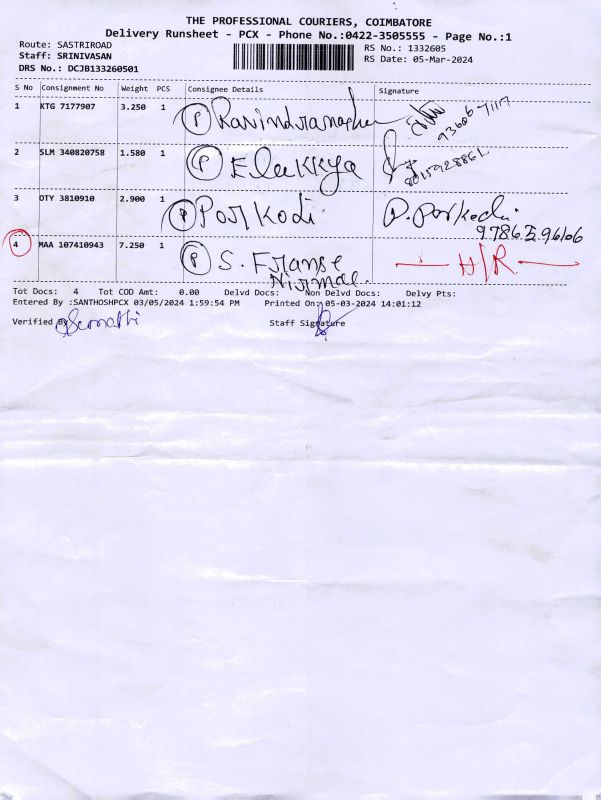 THE PROFESSIONAL COURIERS, COIMBATORE
Delivery Runsheet - PCX - Phone No.:0422-3505555 - Page No.:1
Route: SASTRIROAD
RS No.: 1332605
Staff: SRINIVASAN
RS Date: 05-Mar-2024
DRS No.: DCJB133260501
S No Consignment No Weight PCS Consignee Details Signature
1 KTG 7177907 3.250 1 P
2 SLM 340820758 1.580 1 P Elakkya
3 OTY 3810910 2.900 1 P Porkodi P. Porkodi
9786296106
4 MAA 107410943 7.250 1 P S. Franse H/R
Tot Docs: 4 Tot COD Amt: 0.00 Delvd Docs: Non Delvd Docs: Delvy Pts:
Entered By :SANTHOSHPCX 03/05/2024 1:59:54 PM Printed On: 05-03-2024 14:01:12
Verified By
Staff Signature